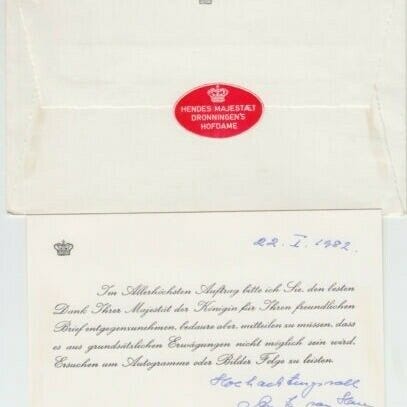 HENDES MAJESTÆT
DRONNINGEN'S
HOFDAME
22. I. 1982.
Im Allerhöchsten Auftrag bitte ich Sie, den besten
Dank Ihrer Majestät der Königin für Ihren freundlichen
Brief entgegenzunehmen, bedaure aber, mitteilen zu müssen, dass
es aus grundsätzlichen Erwägungen nicht möglich sein wird,
Ersuchen um Autogramme oder Bilder Folge zu leisten.
Hochachtungsvoll